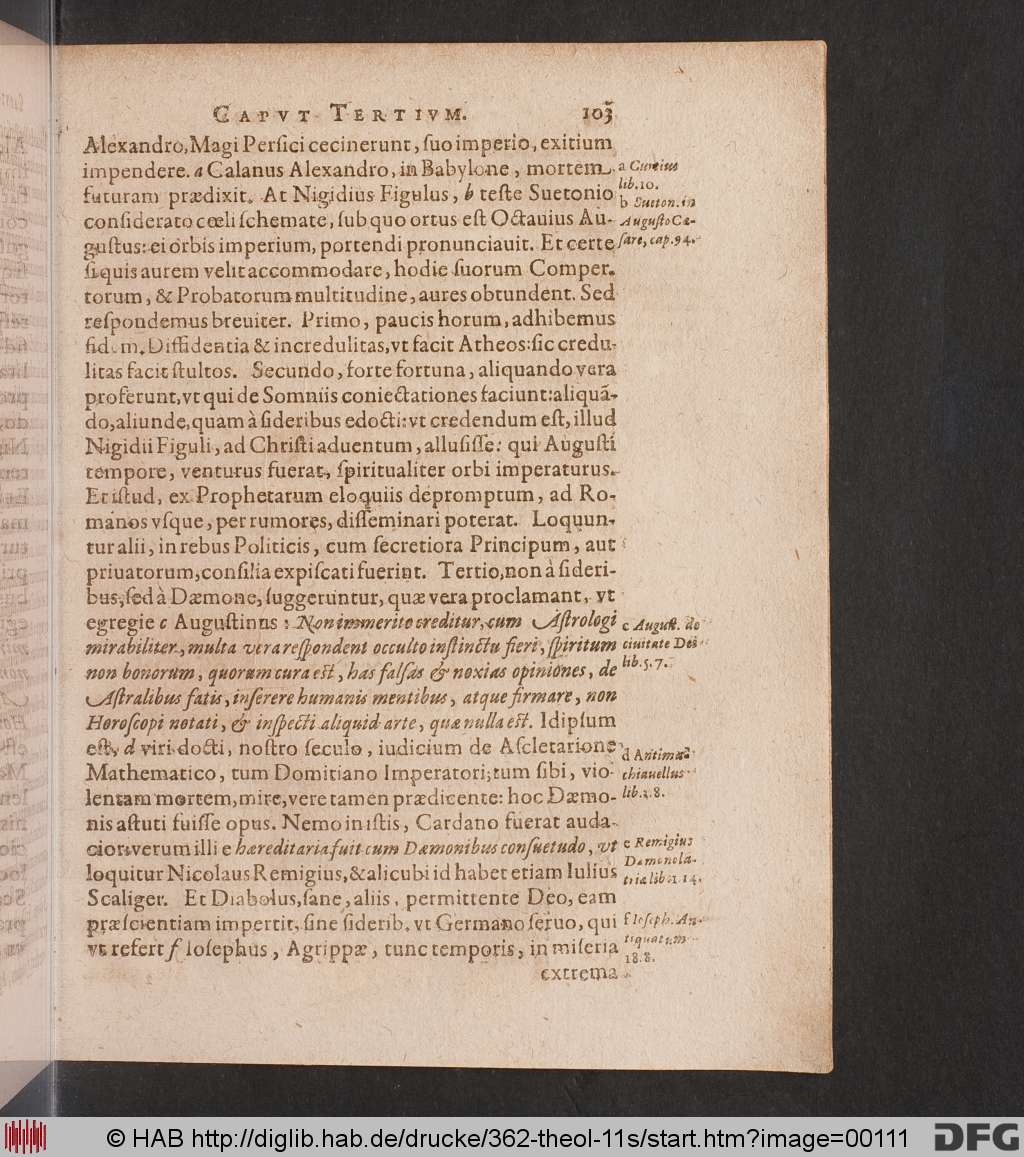 CAPVT TERTIVM. 103
Alexandro, Magi Persici cecinerunt, suo imperio, exitium
impendere. a Calanus Alexandro, in Babylone, mortem
futuram prædixit. At Nigidius Figulus, b teste Suetonio
considerato cœli schemate, sub quo ortus est Octauius Au-
gustus: ei orbis imperium, portendi pronunciauit. Et certe
si quis aurem velit accommodare, hodie suorum Comper-
torum, & Probatorum multitudine, aures obtundent. Sed
respondemus breuiter. Primo, paucis horum, adhibemus
fidem. Diffidentia & incredulitas, vt facit Atheos: sic credu-
litas facit stultos. Secundo, forte fortuna, aliquando vera
proferunt, vt qui de Somniis coniectationes faciunt: aliquã-
do, aliunde, quam à sideribus edocti: vt credendum est, illud
Nigidii Figuli, ad Christi aduentum, allusisse: qui Augusti
tempore, venturus fuerat, spiritualiter orbi imperaturus.
Et istud, ex Prophetarum eloquiis depromptum, ad Ro-
manos vsque, per rumores, disseminari poterat. Loquun-
tur alii, in rebus Politicis, cum secretiora Principum, aut
priuatorum, consilia expiscati fuerint. Tertio, non à sideri-
bus, sed à Dæmone, suggeruntur, quæ vera proclamant, vt
egregie c Augustinus: Non immerito creditur, cum Astrologi
mirabiliter, multa vera respondent occulto instinctu fieri, spirituum
non bonorum, quorum cura est, has falsas & noxias opiniones, de
Astralibus fatis, inserere humanis mentibus, atque firmare, non
Horoscopi notati, & inspecti aliquid arte, quæ nulla est. Idipsum
est, d viri docti, nostro seculo, iudicium de Ascletarione
Mathematico, tum Domitiano Imperatori, tum sibi, vio-
lentam mortem, mire, vere tamen prædicente: hoc Dæmo-
nis astuti fuisse opus. Nemo in istis, Cardano fuerat auda-
cior: verum illi e hæreditaria fuit cum Dæmonibus consuetudo, vt
loquitur Nicolaus Remigius, & alicubi id habet etiam Iulius
Scaliger. Et Diabolus, sane, aliis, permittente Deo, eam
præscientiam impertit, sine siderib. vt Germano seruo, qui
vt refert f Iosephus, Agrippæ, tunc temporis, in miseria
extrema
a Curtius
lib. 10.
b Sueton. in
Augusto Cæ-
sare, cap. 94.
c August. de
ciuitate Dei
lib. 5. 7.
d Antima
chiauellus
lib. 3. 8.
e Remigius
Dæmonola-
tria lib. 1. 14.
f Ioseph. An-
tiquatum
18. 8.
© HAB http://diglib.hab.de/drucke/362-theol-11s/start.htm?image=00111
DFG